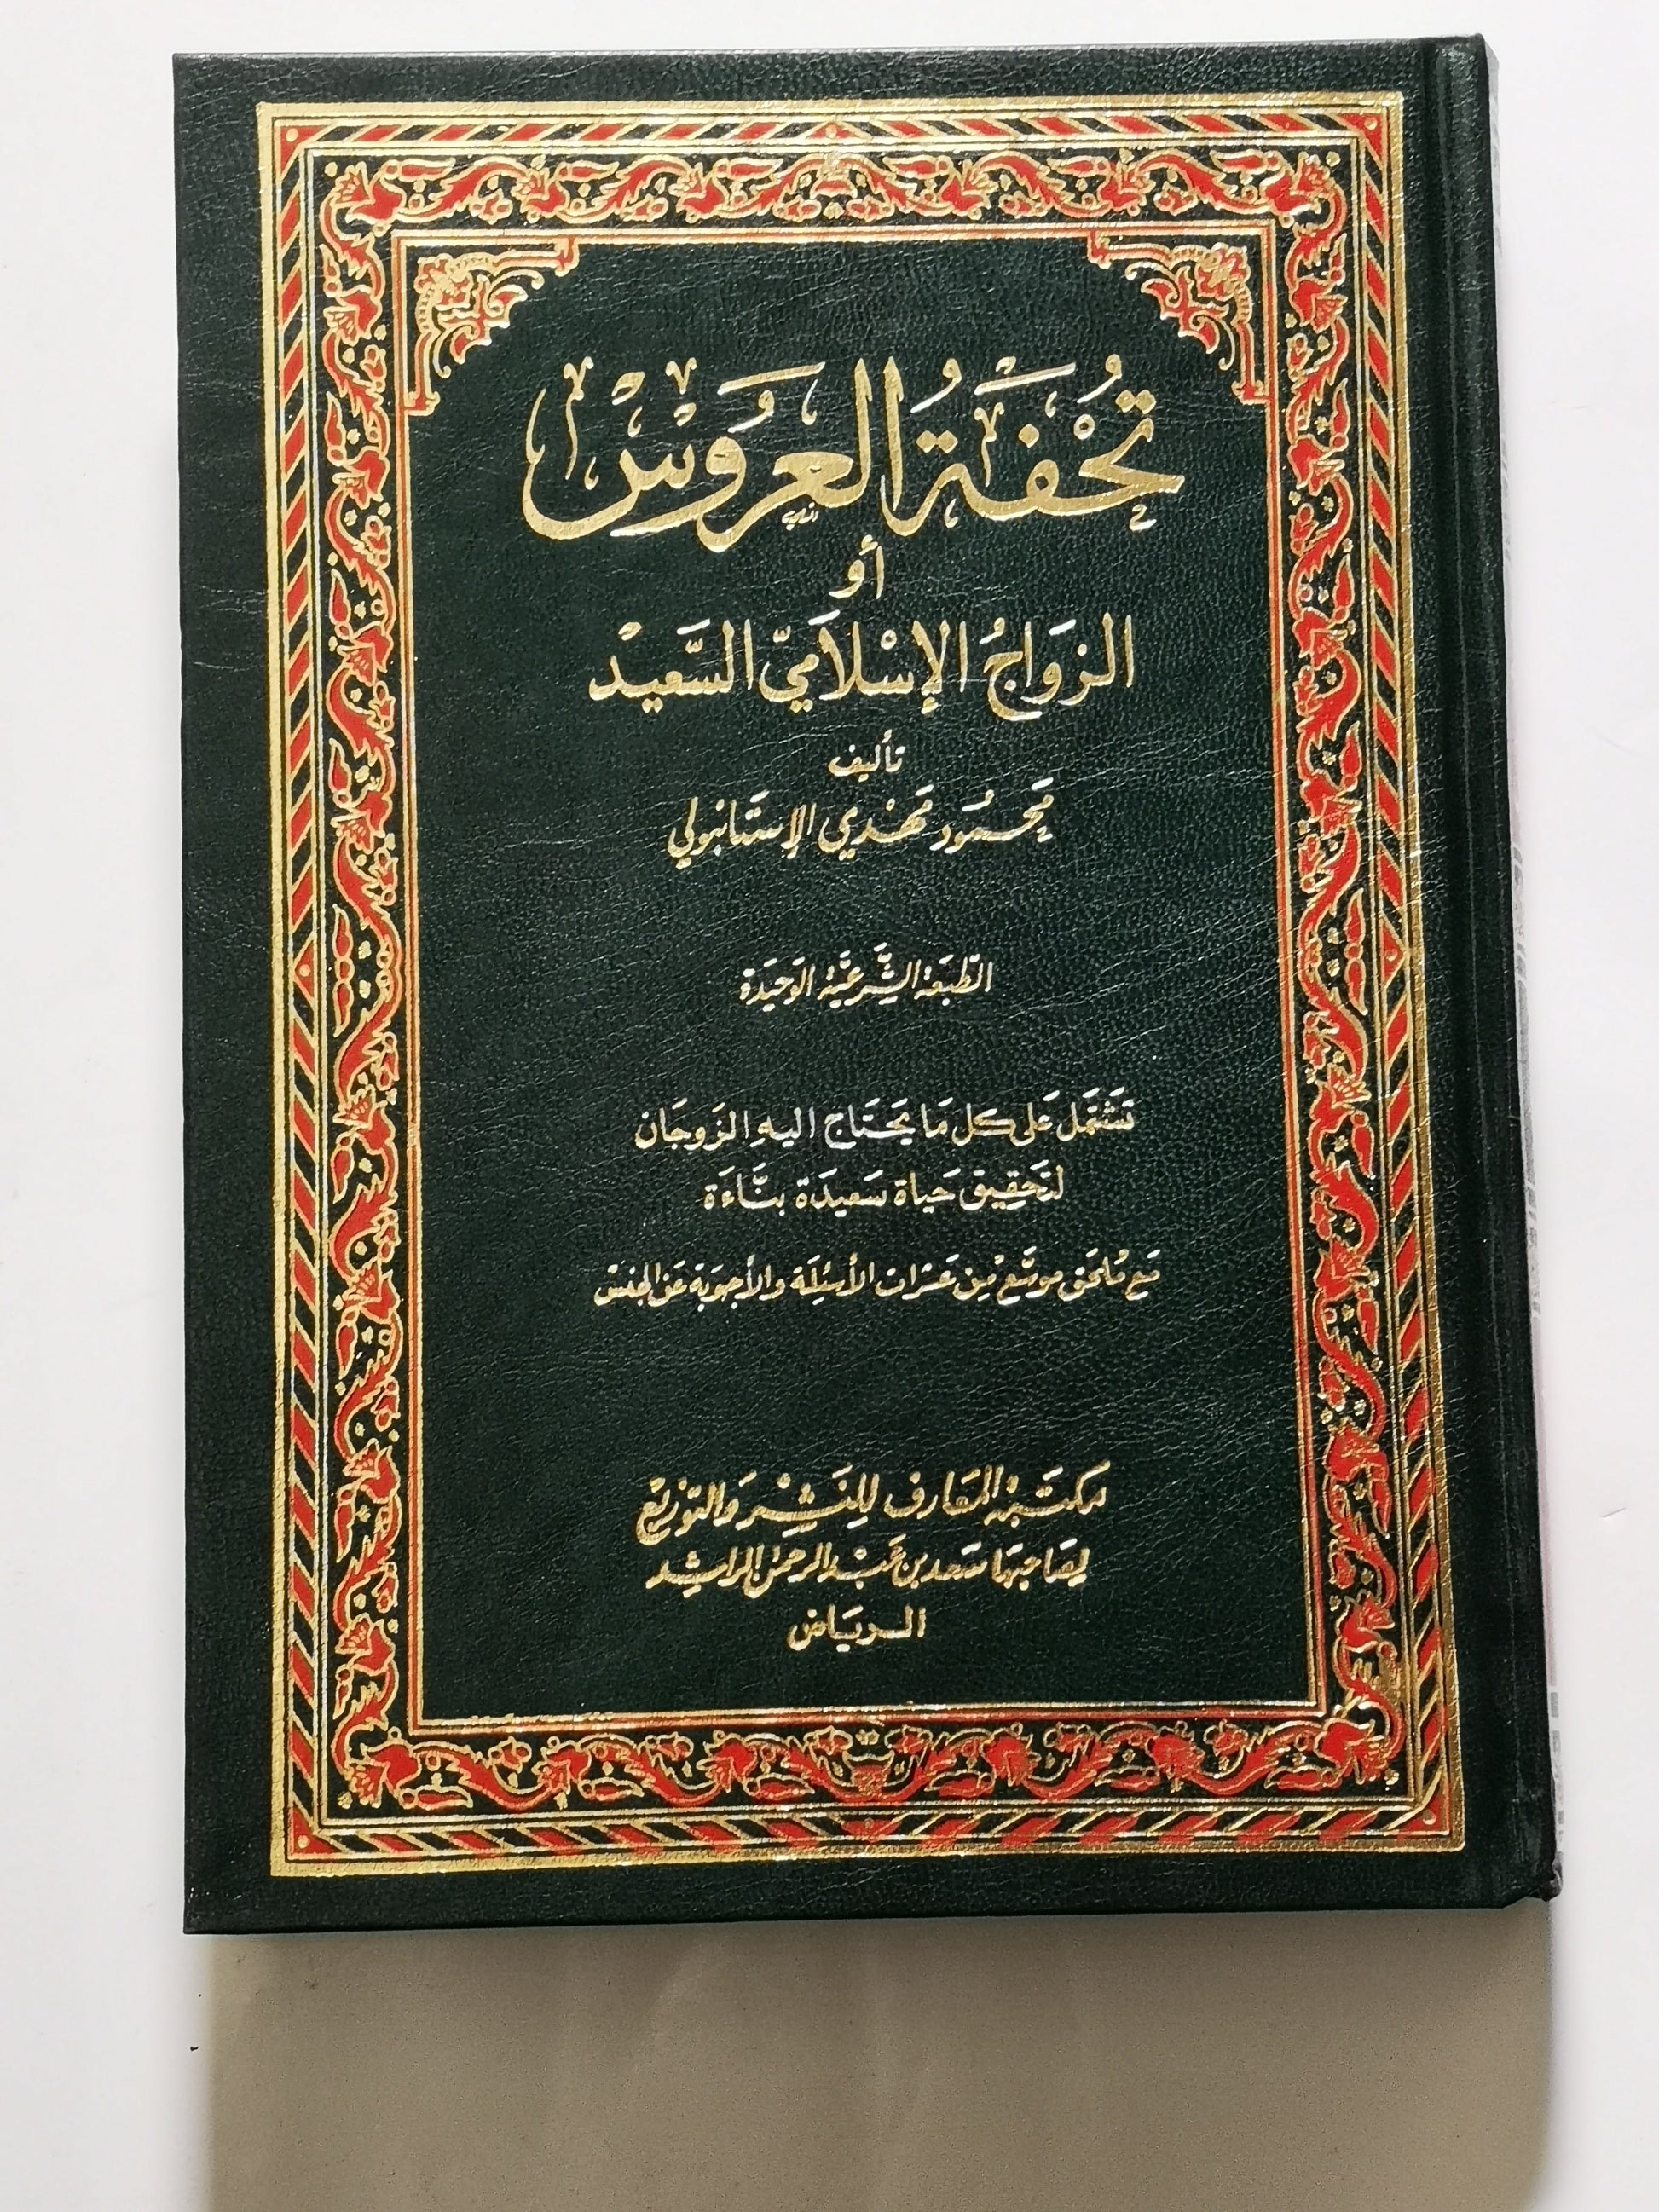 تُحْفَةُ العَرُوسْ
أو
الزَوَاجُ الإسْلَامِيّ السَّعِيدْ
تأليف
محمُود مَهْدي الإستَانبولي
الطبعَة الشَّرعيَّة الوَحيدَة
تَشتَمل عَلى كل مَا يَحتَاج اليهِ الزَوجَان
لتَحقِيق حَياة سَعيدَة بنَّاءَة
مَع مُلحَق موسَّع مِن عَشرات الأسئِلَة والأجوبَة عَن الجنس
مكتَبة المعَارف للنَشْر وَالتوزيع
لصَاحبهَا سَعد بن عَبْد الرحمٰن الراشِد
الريَاض